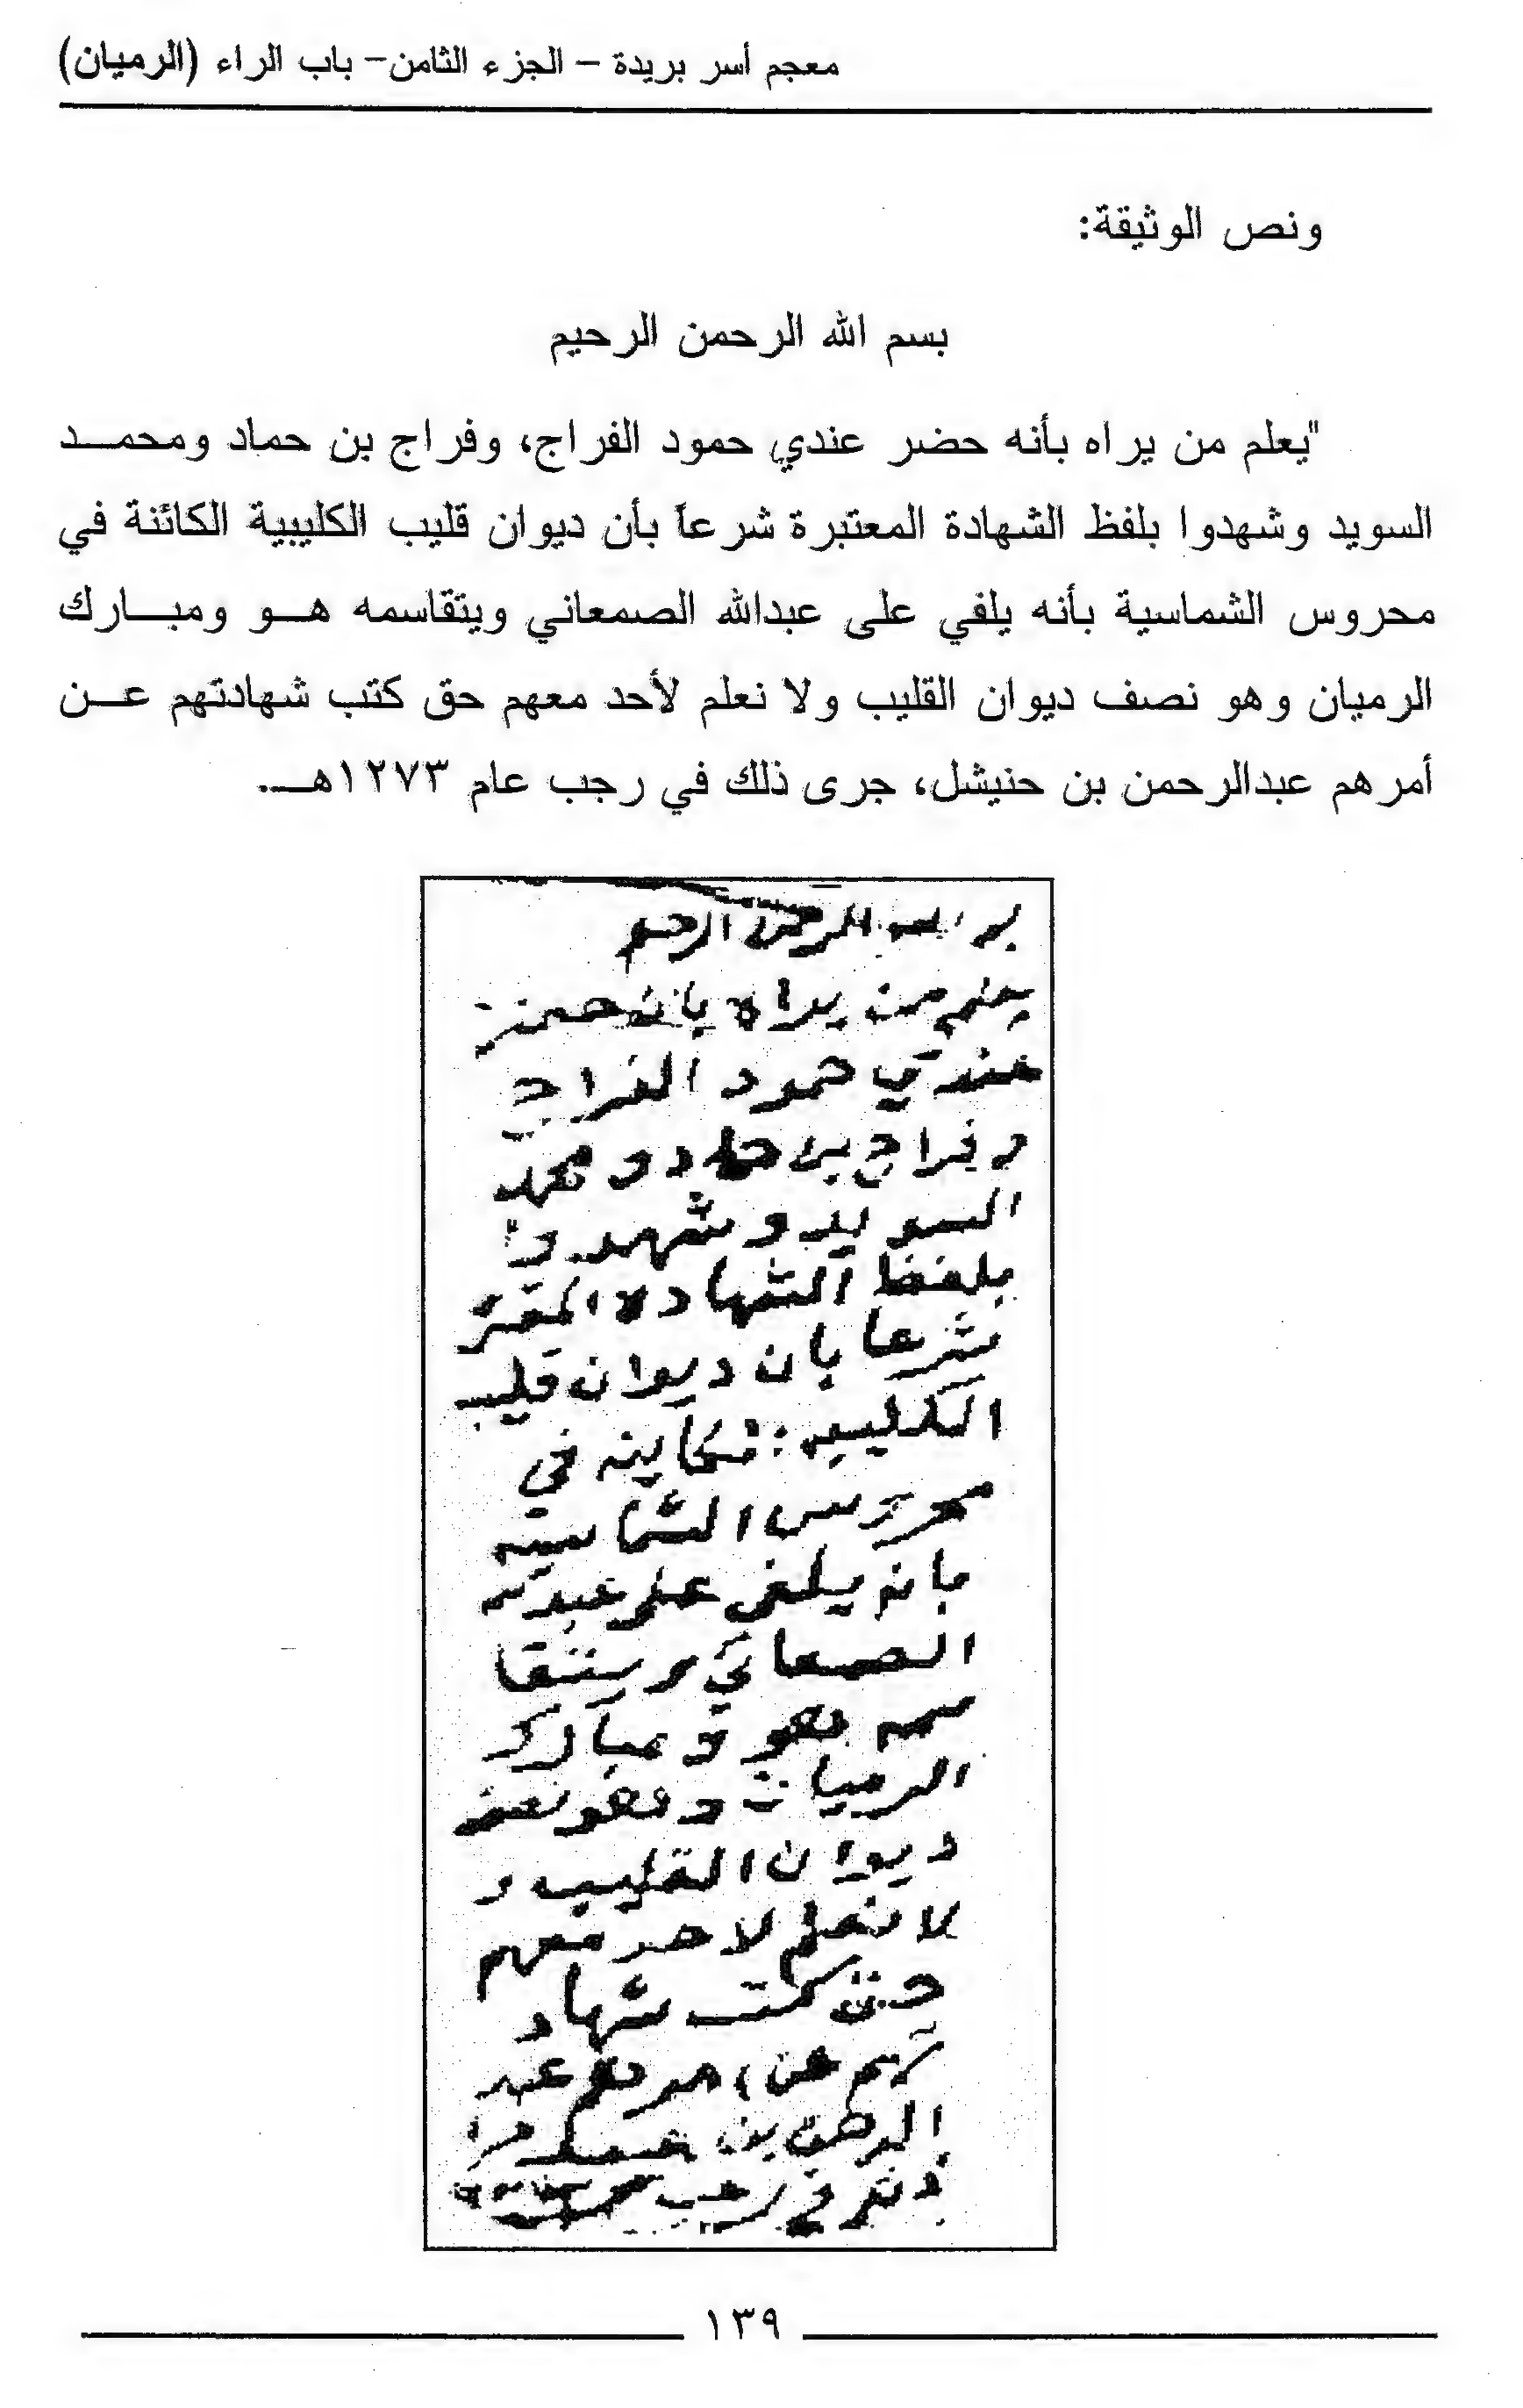 معجم أسر بريدة – الجزء الثامن– باب الراء (الرميان)
ونص الوثيقة:
بسم الله الرحمن الرحيم
"يعلم من يراه بأنه حضر عندي حمود الفراج، وفراج بن حماد ومحمد
السويد وشهدوا بلفظ الشهادة المعتبرة شرعاً بأن ديوان قليب الكليبية الكائنة في
محروس الشماسية بأنه يلفي على عبدالله الصمعاني ويتقاسمه هو ومبارك
الرميان وهو نصف ديوان القليب ولا نعلم لأحد معهم حق كتب شهادتهم عن
أمرهم عبدالرحمن بن حنيشل، جرى ذلك في رجب عام ١٢٧٣هـ.
الرحمن الرحيم
يعلم من يراه بانه حضر
عندي حمود الفراج
وفراج بن حماد ومحمد
السويد وشهدوا
بلفظ الشهاده المعتبر
شرعا بان ديوان قليب
الكليبيه الكاينه في
محروس الشماسيه
بانه يلفي على عبدالله
الصمعاني ويتقا
سمه هو ومبارك
الرميان وهو نصف
ديوان القليب و
لا نعلم لاحد معهم
حق كتب شهاد
تهم عن امرهم عبد
الرحمن بن حنيشل جرا
ذلك في رجب
١٣٩